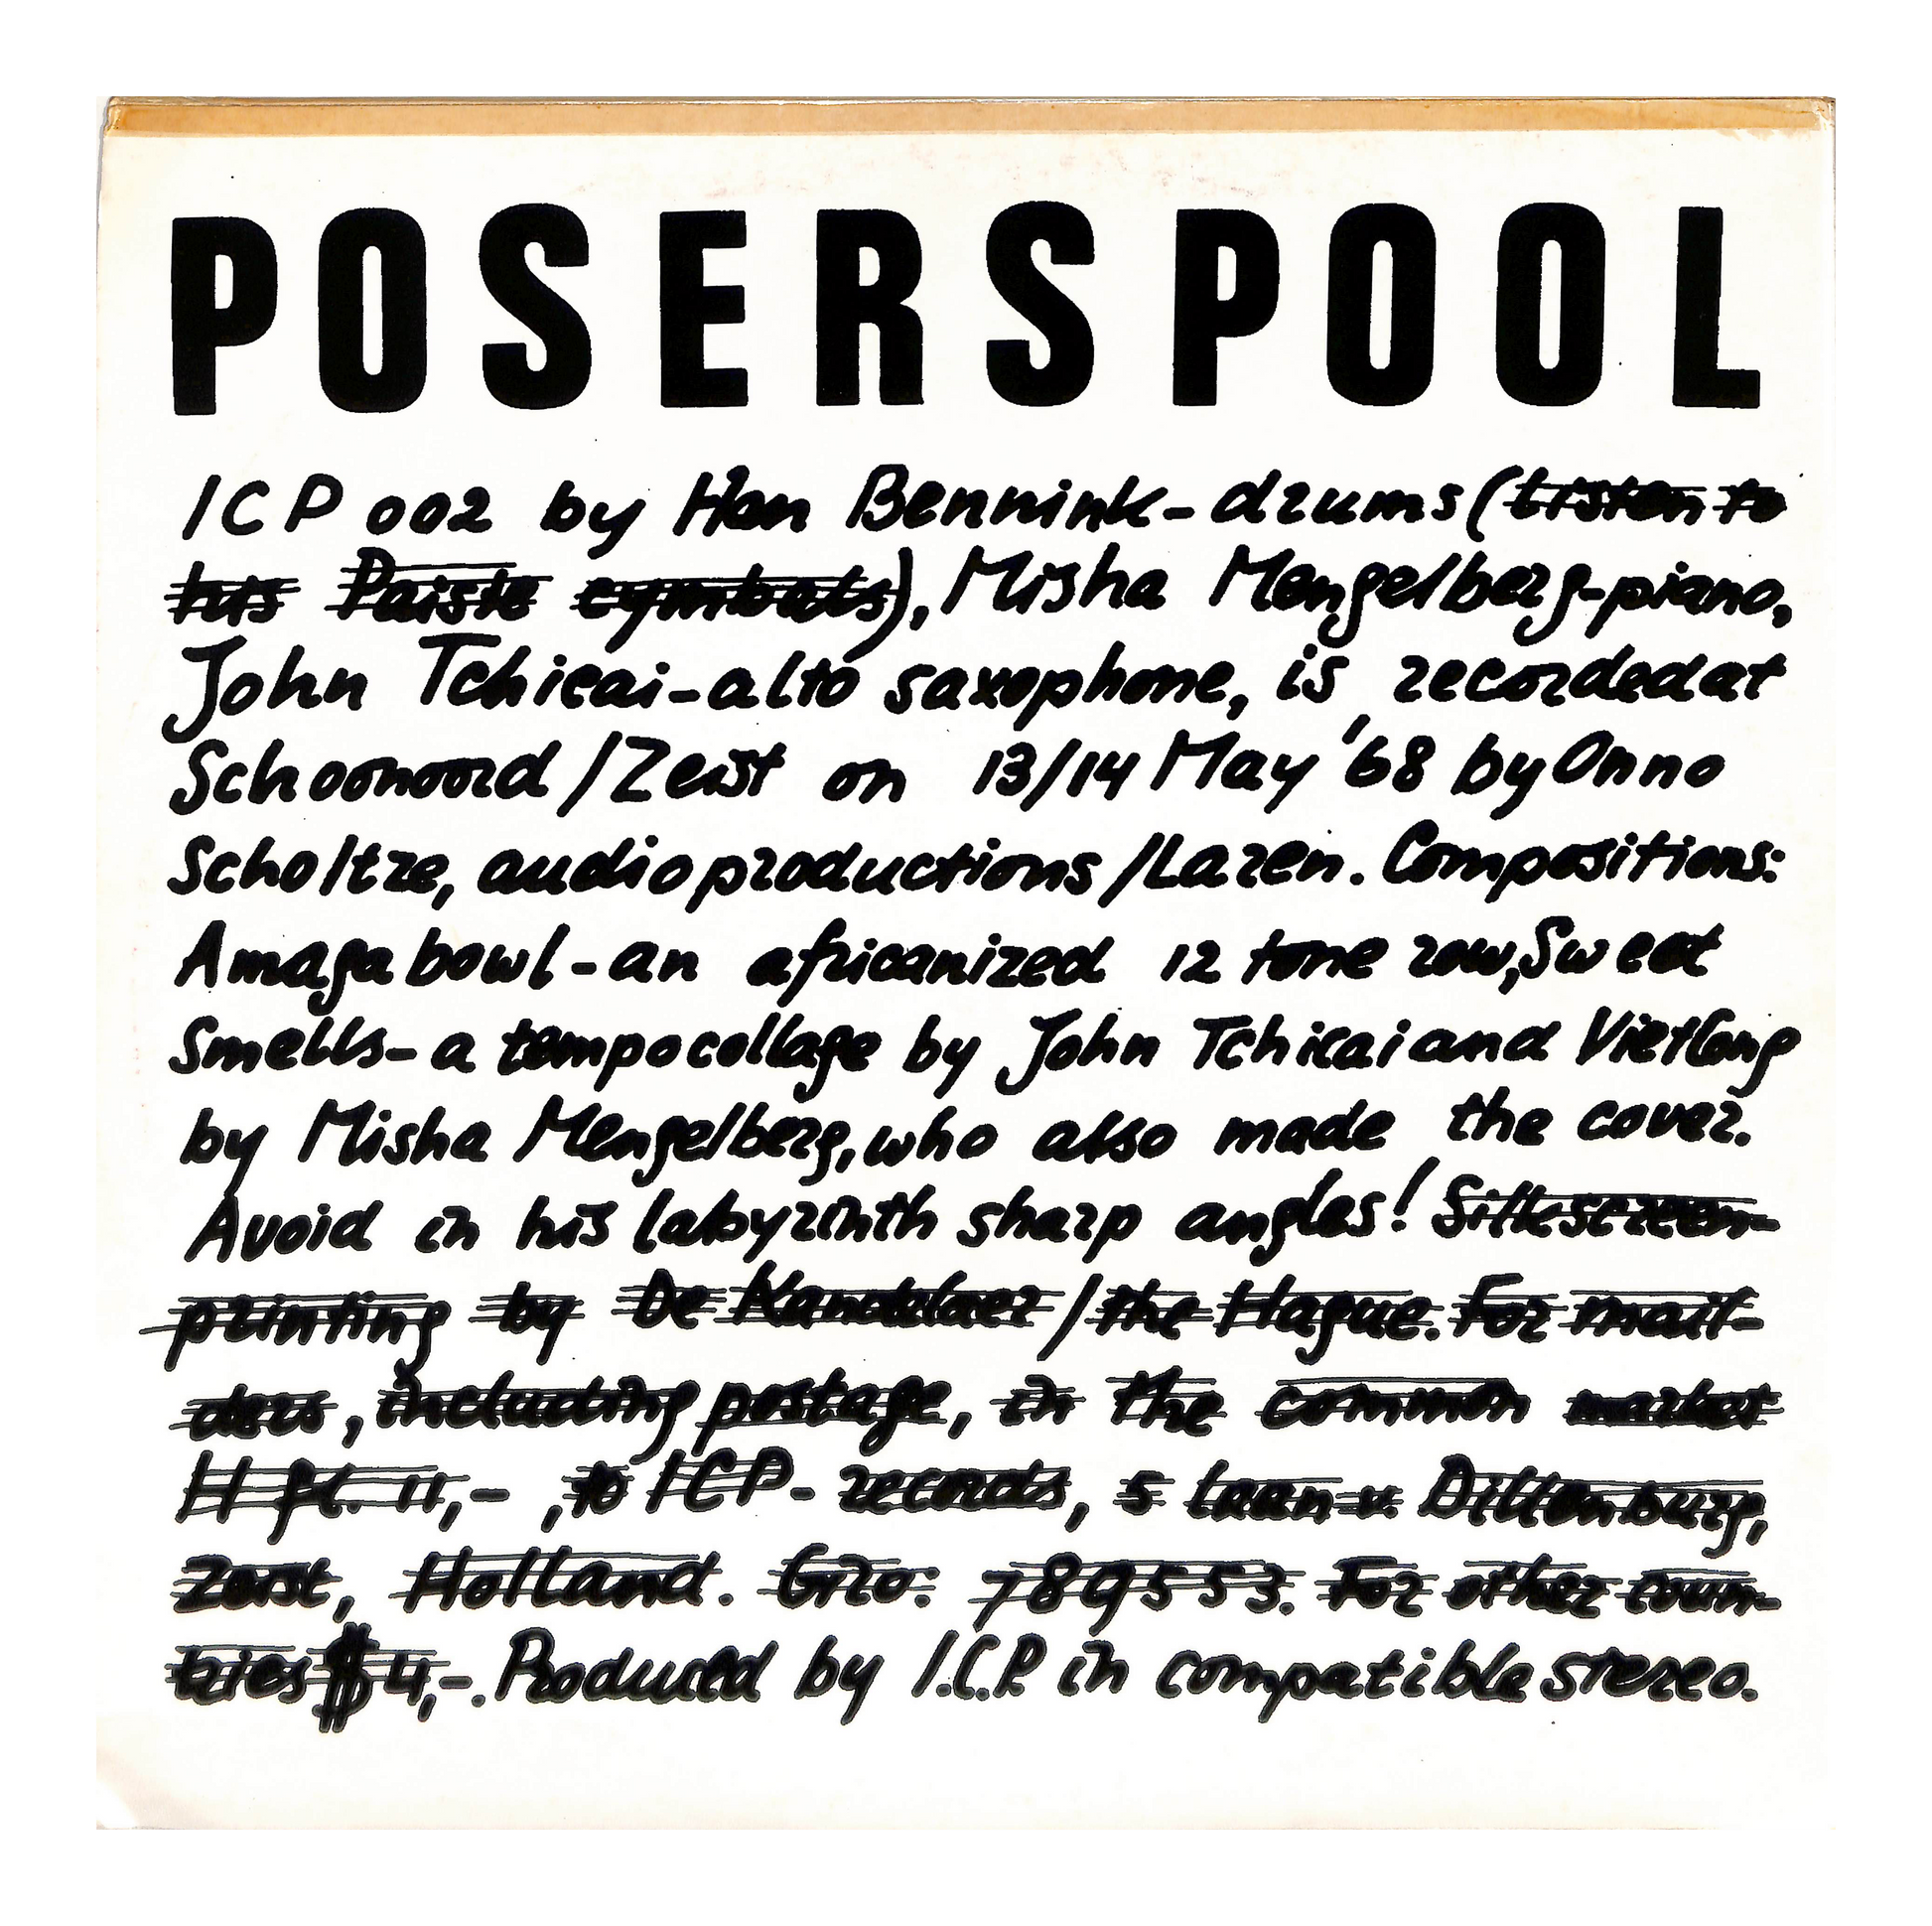 POSERSPOOL
ICP 002 by Han Bennink - drums (listen to
his Paiste cymbals), Misha Mengelberg - piano,
John Tchicai - alto saxophone, is recorded at
Schoonoord / Zeist on 13/14 May '68 by Onno
Scholtze, audioproductions / Laren. Compositions:
Amagabowl - an africanized 12 tone row, Sweet
Smells - a tempocollage by John Tchicai and Vietcong
by Misha Mengelberg, who also made the cover.
Avoid in his labyrinth sharp angles! Silkscreen-
printing by De Kandelaer / the Hague. For mail-
ders, including postage, in the common market
H fl. 11,- , to ICP - records, 5 Laan v. Dillenburg,
Zeist, Holland. Giro: 789553. For other coun-
tries $ 4,-. Produced by I.C.P. in compatible stereo.